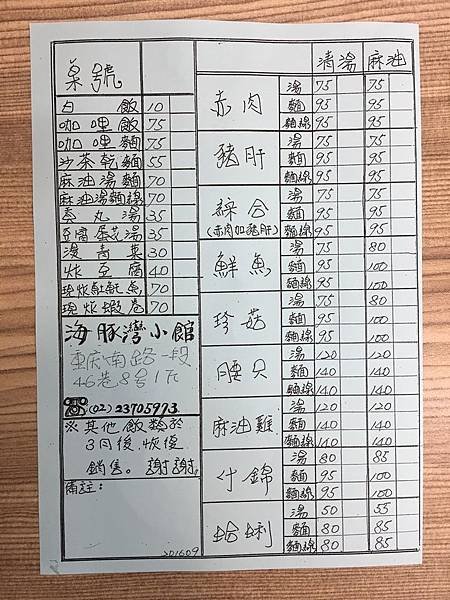 桌號
白飯 10
咖哩飯 75
咖哩麵 75
沙茶乾麵 55
麻油湯麵 70
麻油湯麵線 70
貢丸湯 35
豆腐蛋花湯 35
燙青菜 30
炸豆腐 40
現炸魠魚 70
現炸蝦卷 70
海豚灣小館
重庆南路一段
46巷8号1F
☎(02)23705973
※其他飯類於
3月後恢復
銷售。謝謝
備註:
201609
清湯 麻油
赤肉
湯 75 75
麵 95 95
麵線 95 95
豬肝
湯 75 75
麵 95 95
麵線 95 95
綜合
(赤肉加豬肝)
湯 75 75
麵 95 95
麵線 95 95
鮮魚
湯 75 80
麵 95 100
麵線 95 100
珍菇
湯 75 80
麵 95 100
麵線 95 100
腰只
湯 120 120
麵 140 140
麵線 140 140
麻油雞
湯 120 120
麵 140 140
麵線 140 140
什錦
湯 80 85
麵 95 100
麵線 95 100
蛤蜊
湯 50 55
麵 80 85
麵線 80 85